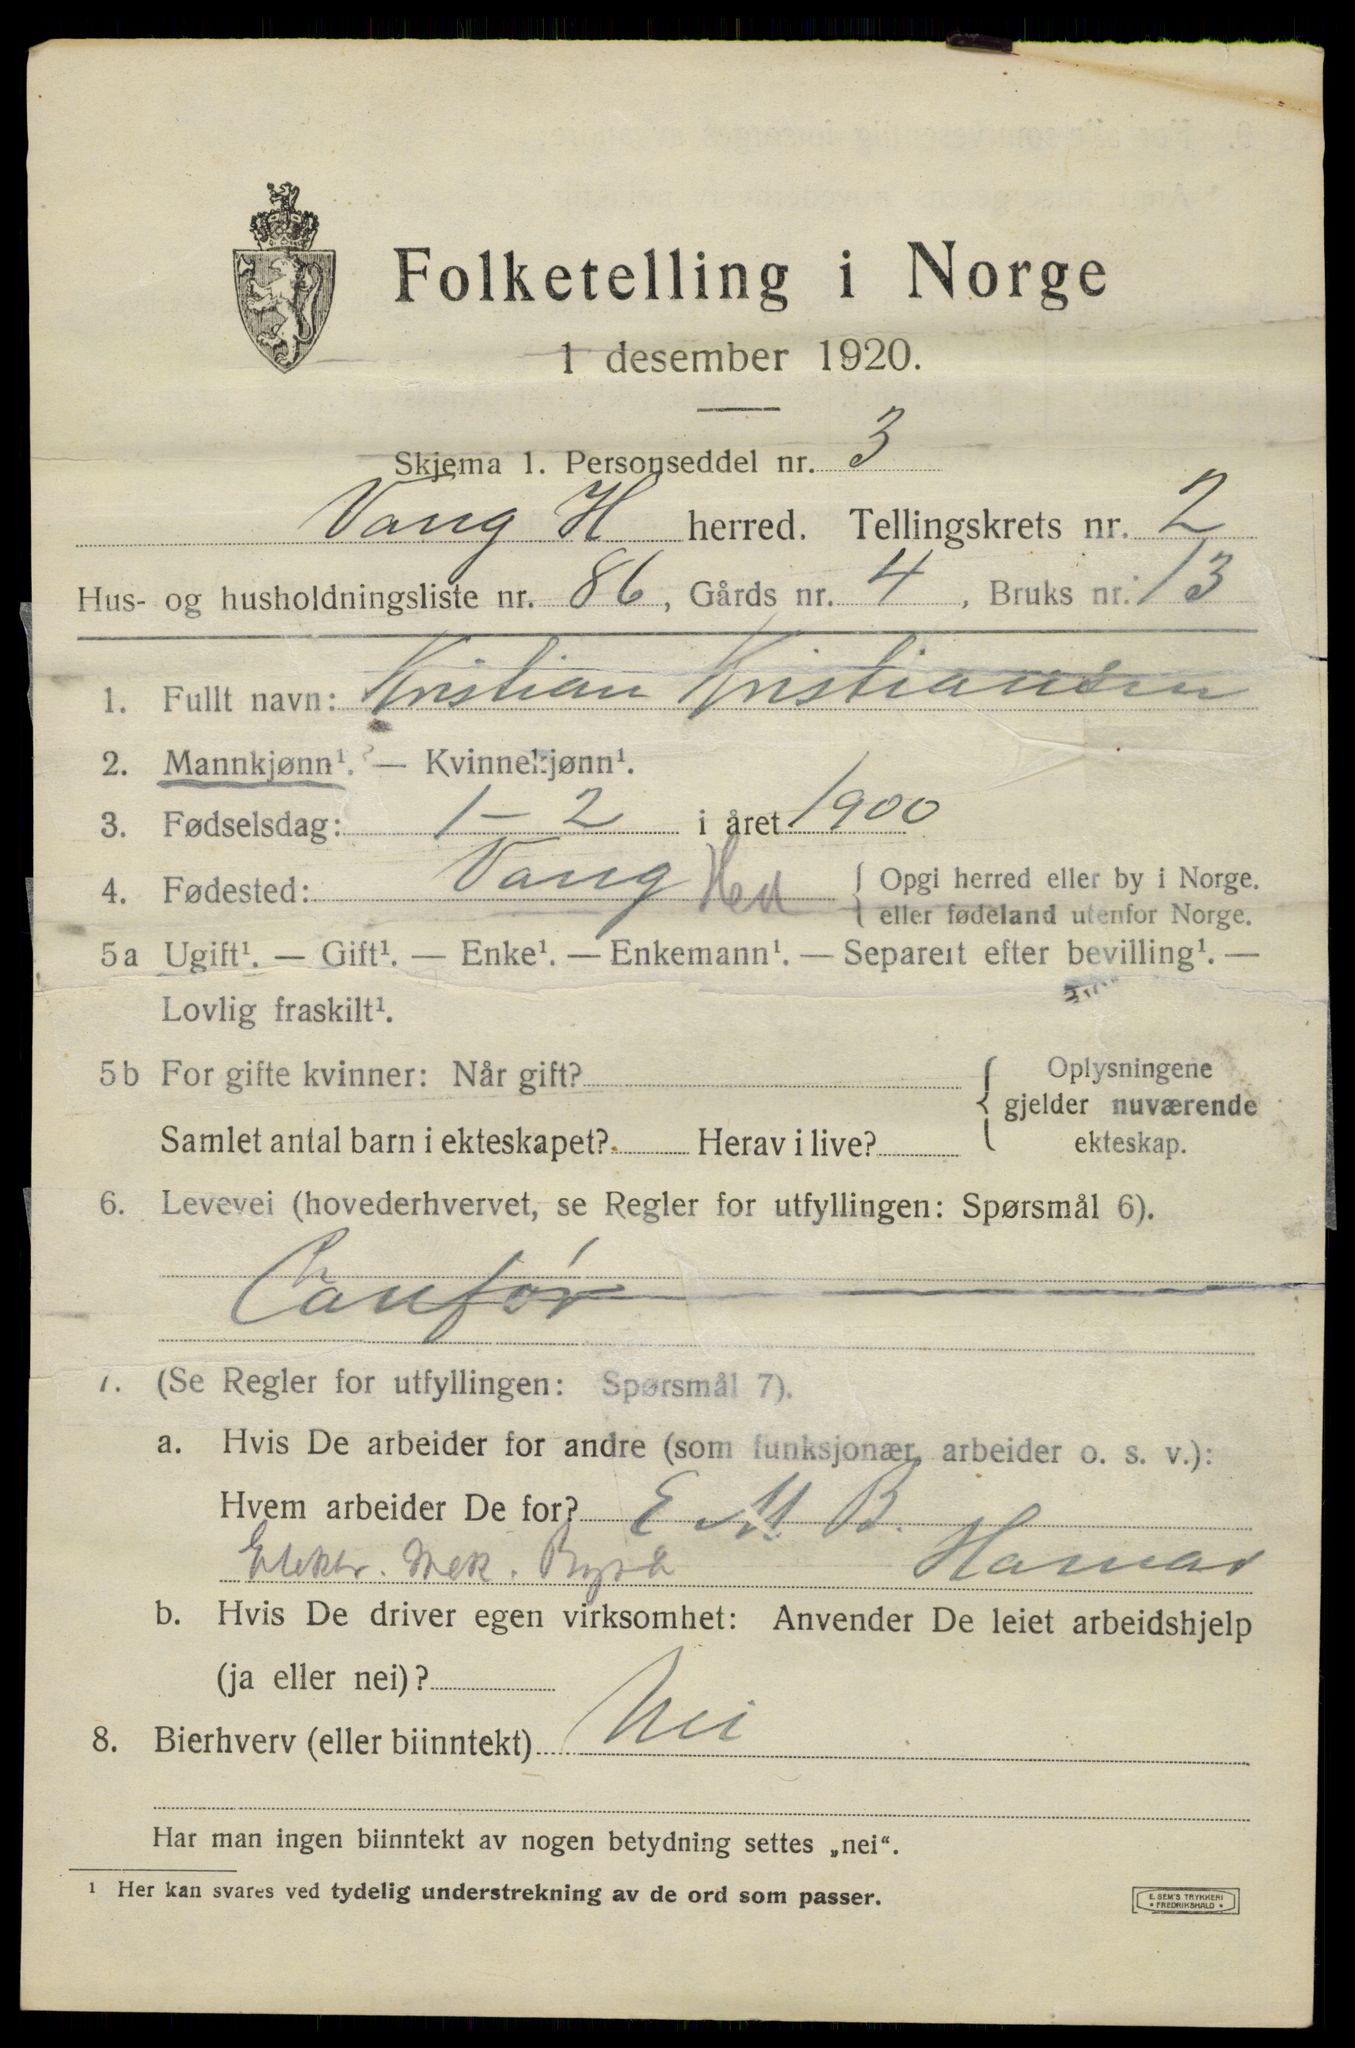 Folketelling i Norge
1 desember 1920.
Skjema 1. Personseddel nr. 3
Vang H herred. Tellingskrets nr. 2
Hus- og husholdningsliste nr. 86, Gårds nr. 4, Bruks nr. 13
1. Fullt navn: Kristian Kristiansen
2. Mannkjønn¹. — Kvinnekjønn¹.
3. Fødselsdag: 1-2 i året 1900
4. Fødested: Vang Hed { Opgi herred eller by i Norge.
eller fødeland utenfor Norge.
5a Ugift¹. — Gift¹. — Enke¹. — Enkemann¹. — Separert efter bevilling¹. —
Lovlig fraskilt¹.
5b For gifte kvinner: Når gift? { Oplysningene
gjelder nuværende
Samlet antal barn i ekteskapet? Herav i live? ekteskap.
6. Levevei (hovederhvervet, se Regler for utfyllingen: Spørsmål 6).
Chaufør
7. (Se Regler for utfyllingen: Spørsmål 7).
a. Hvis De arbeider for andre (som funksjonær, arbeider o. s. v.):
Hvem arbeider De for? E M B.
Elektr. Mek. Byrå Hamar
b. Hvis De driver egen virksomhet: Anvender De leiet arbeidshjelp
(ja eller nei)?
8. Bierhverv (eller biinntekt) Nei
Har man ingen biinntekt av nogen betydning settes „nei“.
¹ Her kan svares ved tydelig understrekning av de ord som passer.
E. SEM'S TRYKKERI
• FREDRIKSHALD •